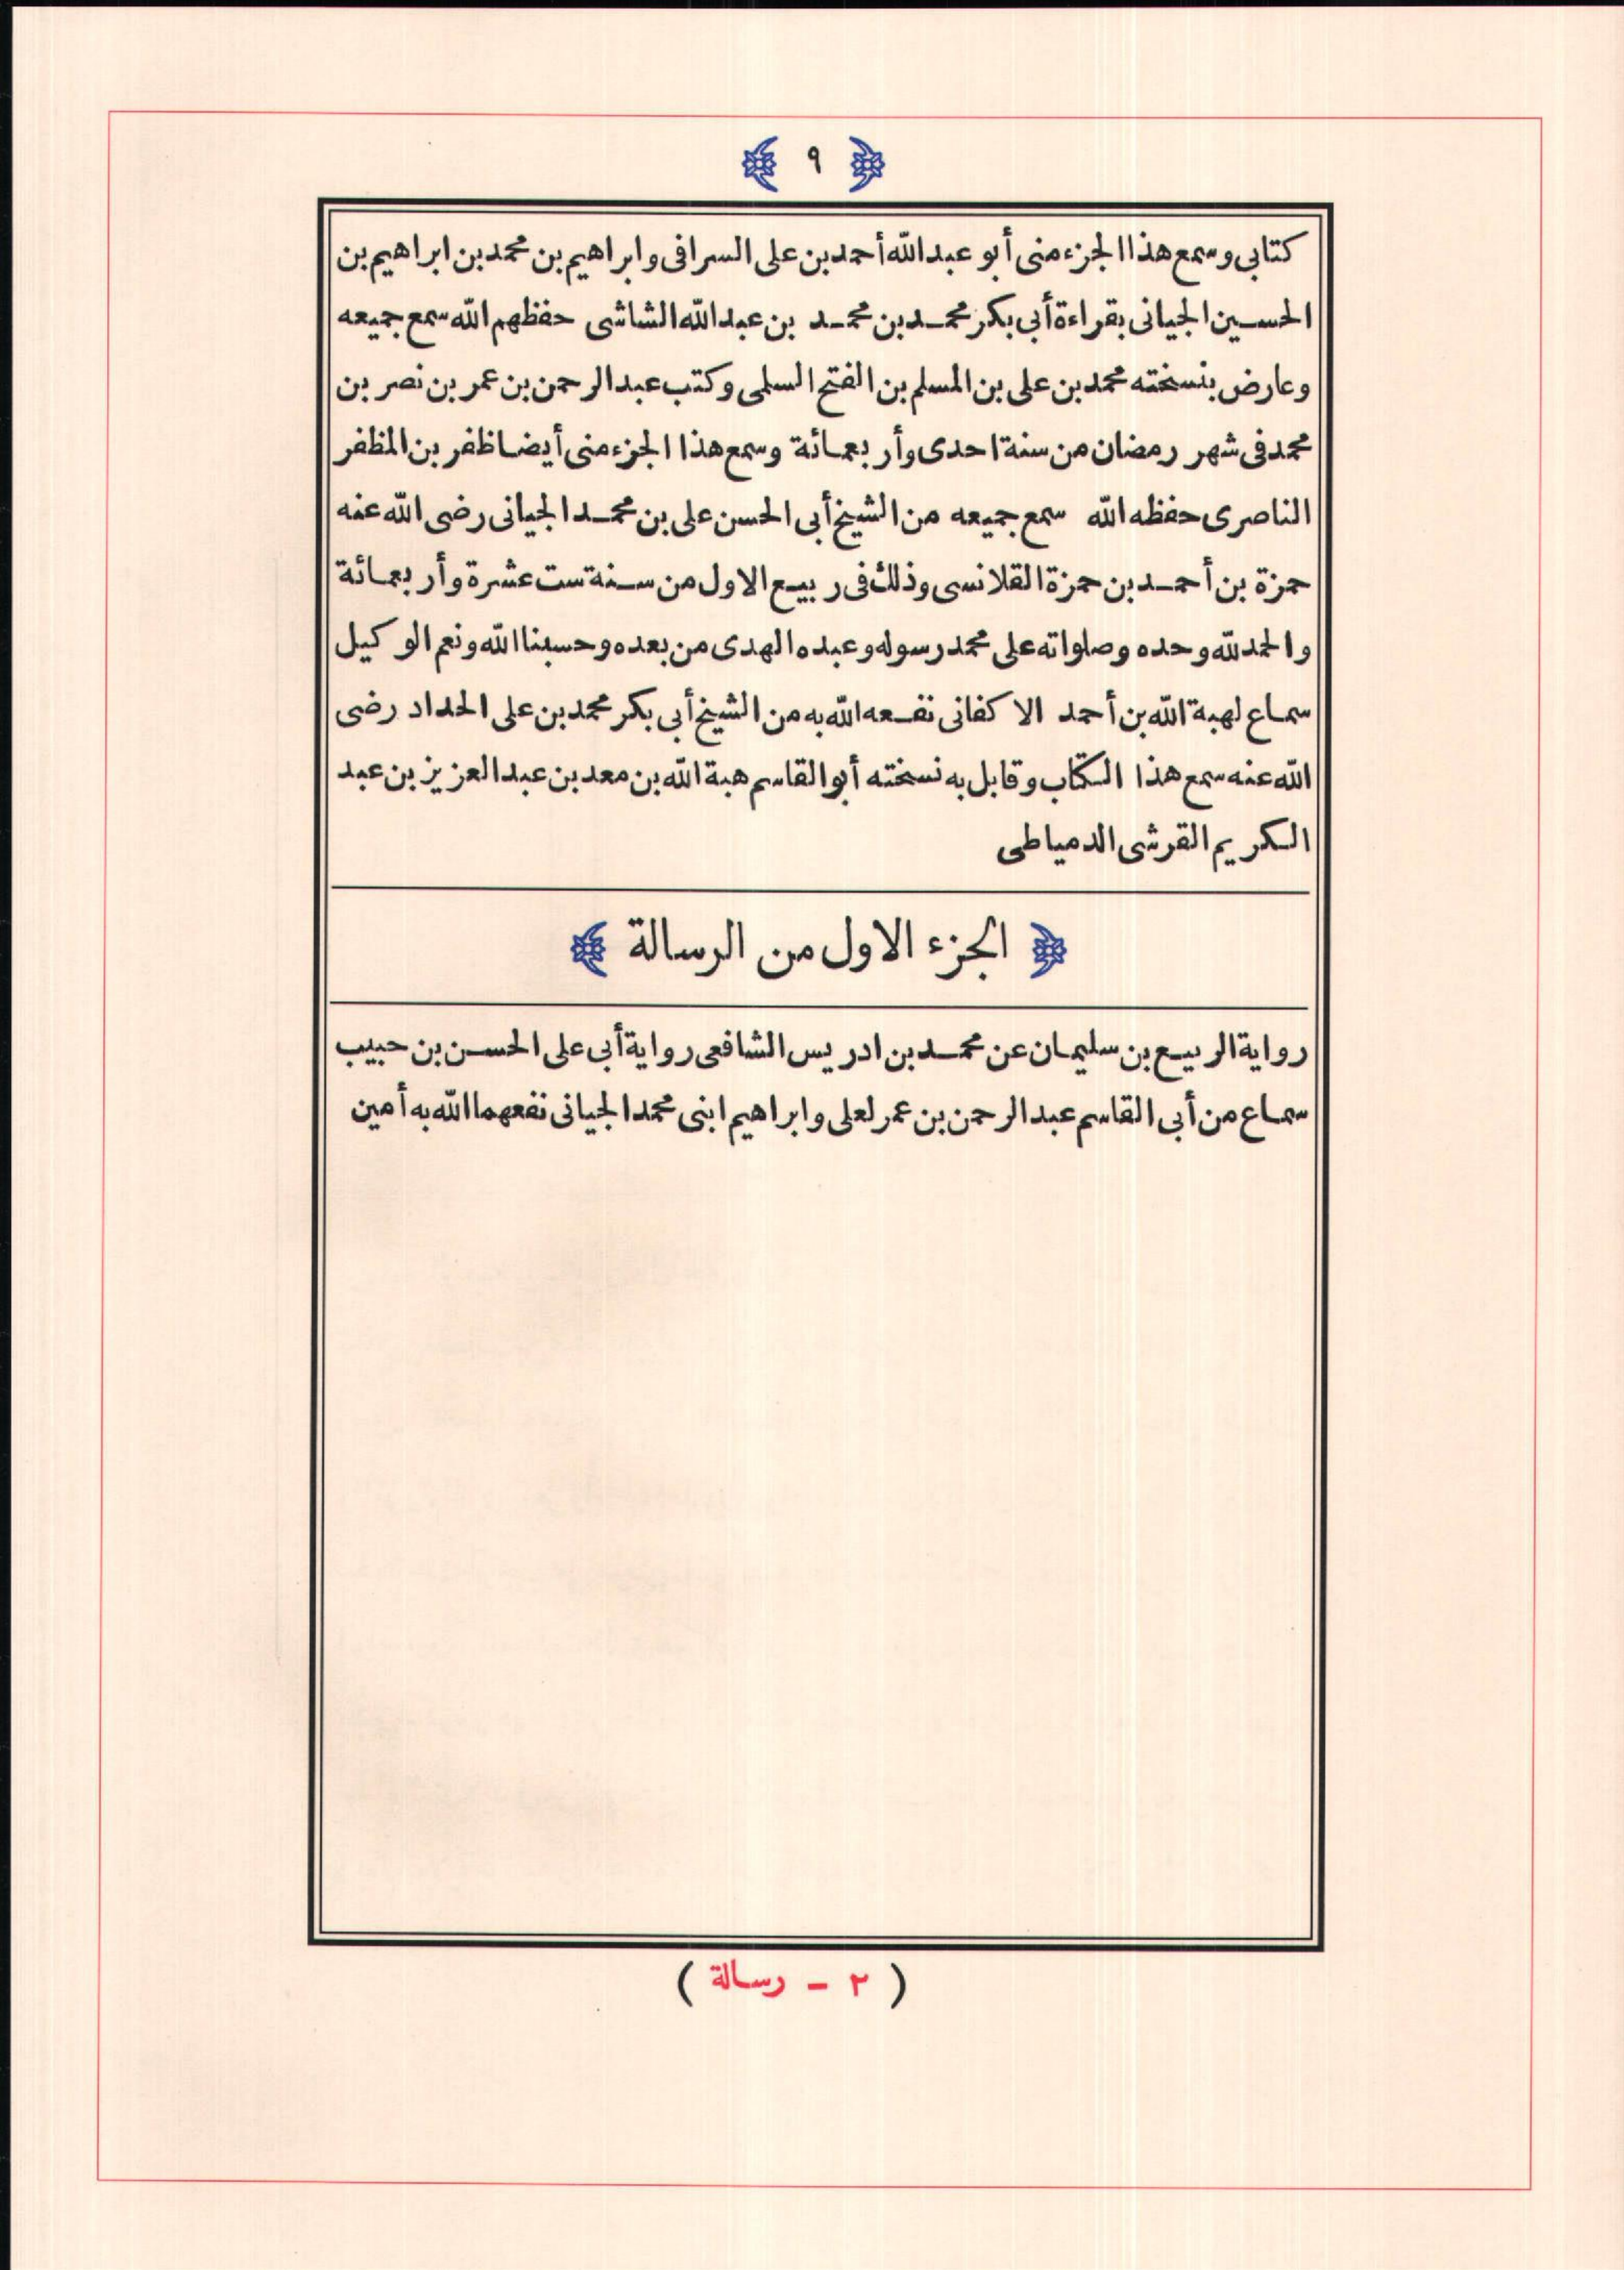 ﴿ ٩ ﴾
كتابى وسمع هذا الجزء منى أبو عبد الله أحمد بن على السرافى وابراهيم بن محمد بن ابراهيم بن
الحسين الجيانى بقراءة أبى بكر محمد بن محمد بن عبد الله الشاشى حفظهم الله سمع جميعه
وعارض بنسخته محمد بن على بن المسلم بن الفتح السلمى وكتب عبد الرحمن بن عمر بن نصر بن
محمد فى شهر رمضان من سنة احدى وأربعمائة وسمع هذا الجزء منى أيضا ظفر بن المظفر
الناصرى حفظه الله سمع جميعه من الشيخ أبى الحسن على بن محمد الجيانى رضى الله عنه
حمزة بن أحمد بن حمزة القلانسى وذلك فى ربيع الاول من سنة ست عشرة وأربعمائة
والحمد لله وحده وصلواته على محمد رسوله وعبده الهدى من بعده وحسبنا الله ونعم الوكيل
سماع لهبة الله بن أحمد الاكفانى نفعه الله به من الشيخ أبى بكر محمد بن على الحداد رضى
الله عنه سمع هذا الكتاب وقابل به نسخته أبو القاسم هبة الله بن معد بن عبد العزيز بن عبد
الكريم القرشى الدمياطى
﴿ الجزء الاول من الرسالة ﴾
رواية الربيع بن سليمان عن محمد بن ادريس الشافعى رواية أبى على الحسن بن حبيب
سماع من أبى القاسم عبد الرحمن بن عمر لعلى وابراهيم ابنى محمد الجيانى نفعهما الله به أمين
( ٢ - رسالة )